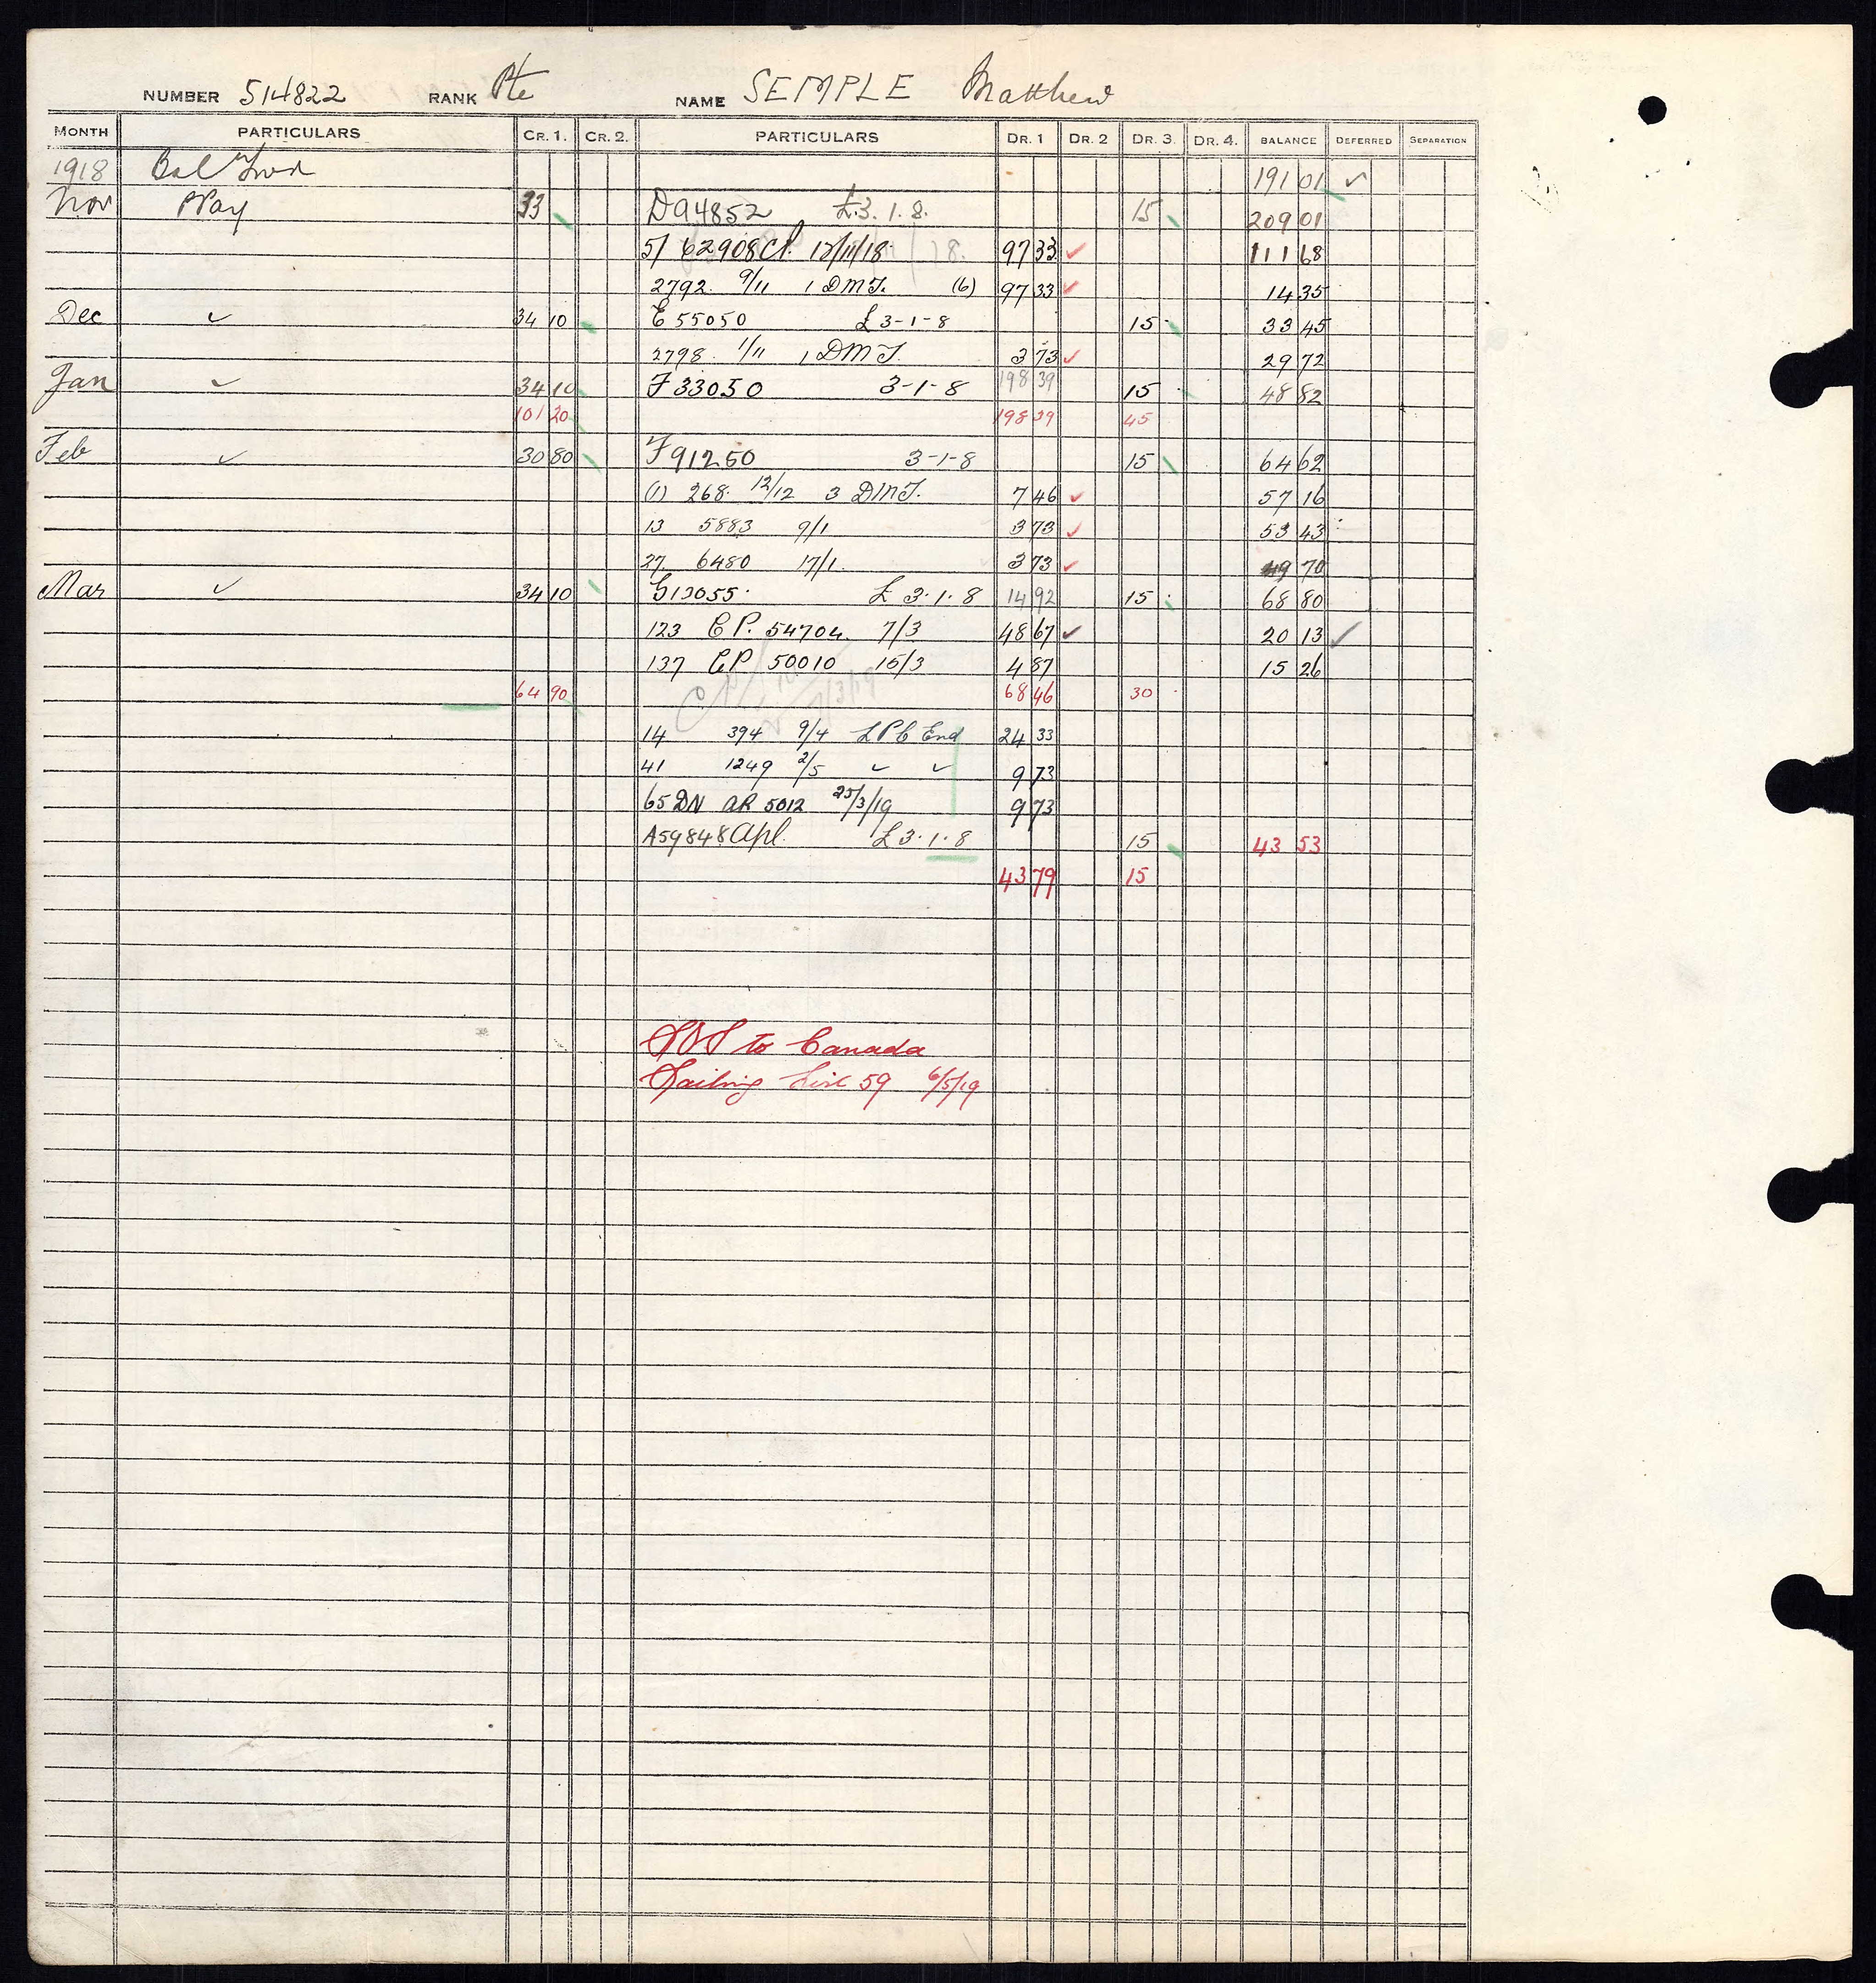 NUMBER 514822 RANK Pte NAME SEMPLE Matthew
MONTH PARTICULARS CR. 1. CR. 2. PARTICULARS DR. 1 DR. 2 DR. 3. DR. 4. BALANCE DEFERRED SEPARATION
1918 Bal Fwd 191 01 ✓
Nov Pay 33 D94852 £3.1.8. 15 209 01
51 62908 Cl. 12/11/18 97 33 ✓ 111 68
2792. 9/11 1 DMT. (6) 97 33 ✓ 14 35
Dec ✓ 34 10 E 55050 £ 3-1-8 15 33 45
2798. 1/11 1 DMT. 3 73 ✓ 29 72
Jan ✓ 34 10 F 33050 3-1-8 198 39 15 48 82
101 20 198 39 45
Feb ✓ 30 80 F91250 3-1-8 15 64 62
(1) 268. 12/12 3 DMT. 7 46 ✓ 57 16
13 5883 9/1 3 73 ✓ 53 43
27. 6480 17/1. 3 73 ✓ 49 70
Mar ✓ 34 10 G13055. £ 3.1.8 14 92 15 68 80
123 CP. 54704. 7/3 48 67 ✓ 20 13 ✓
137 CP 50010 15/3 4 87 15 26
64 90 68 46 30
14 394 9/4 LPC End 24 33
41 1249 2/5 ✓ ✓ 9 73
65 DN AR 5012 25/3/19 9 73
A59848 Apl. £ 3.1.8 15 43 53
43 79 15
SOS to Canada
Sailing List 59 6/5/19